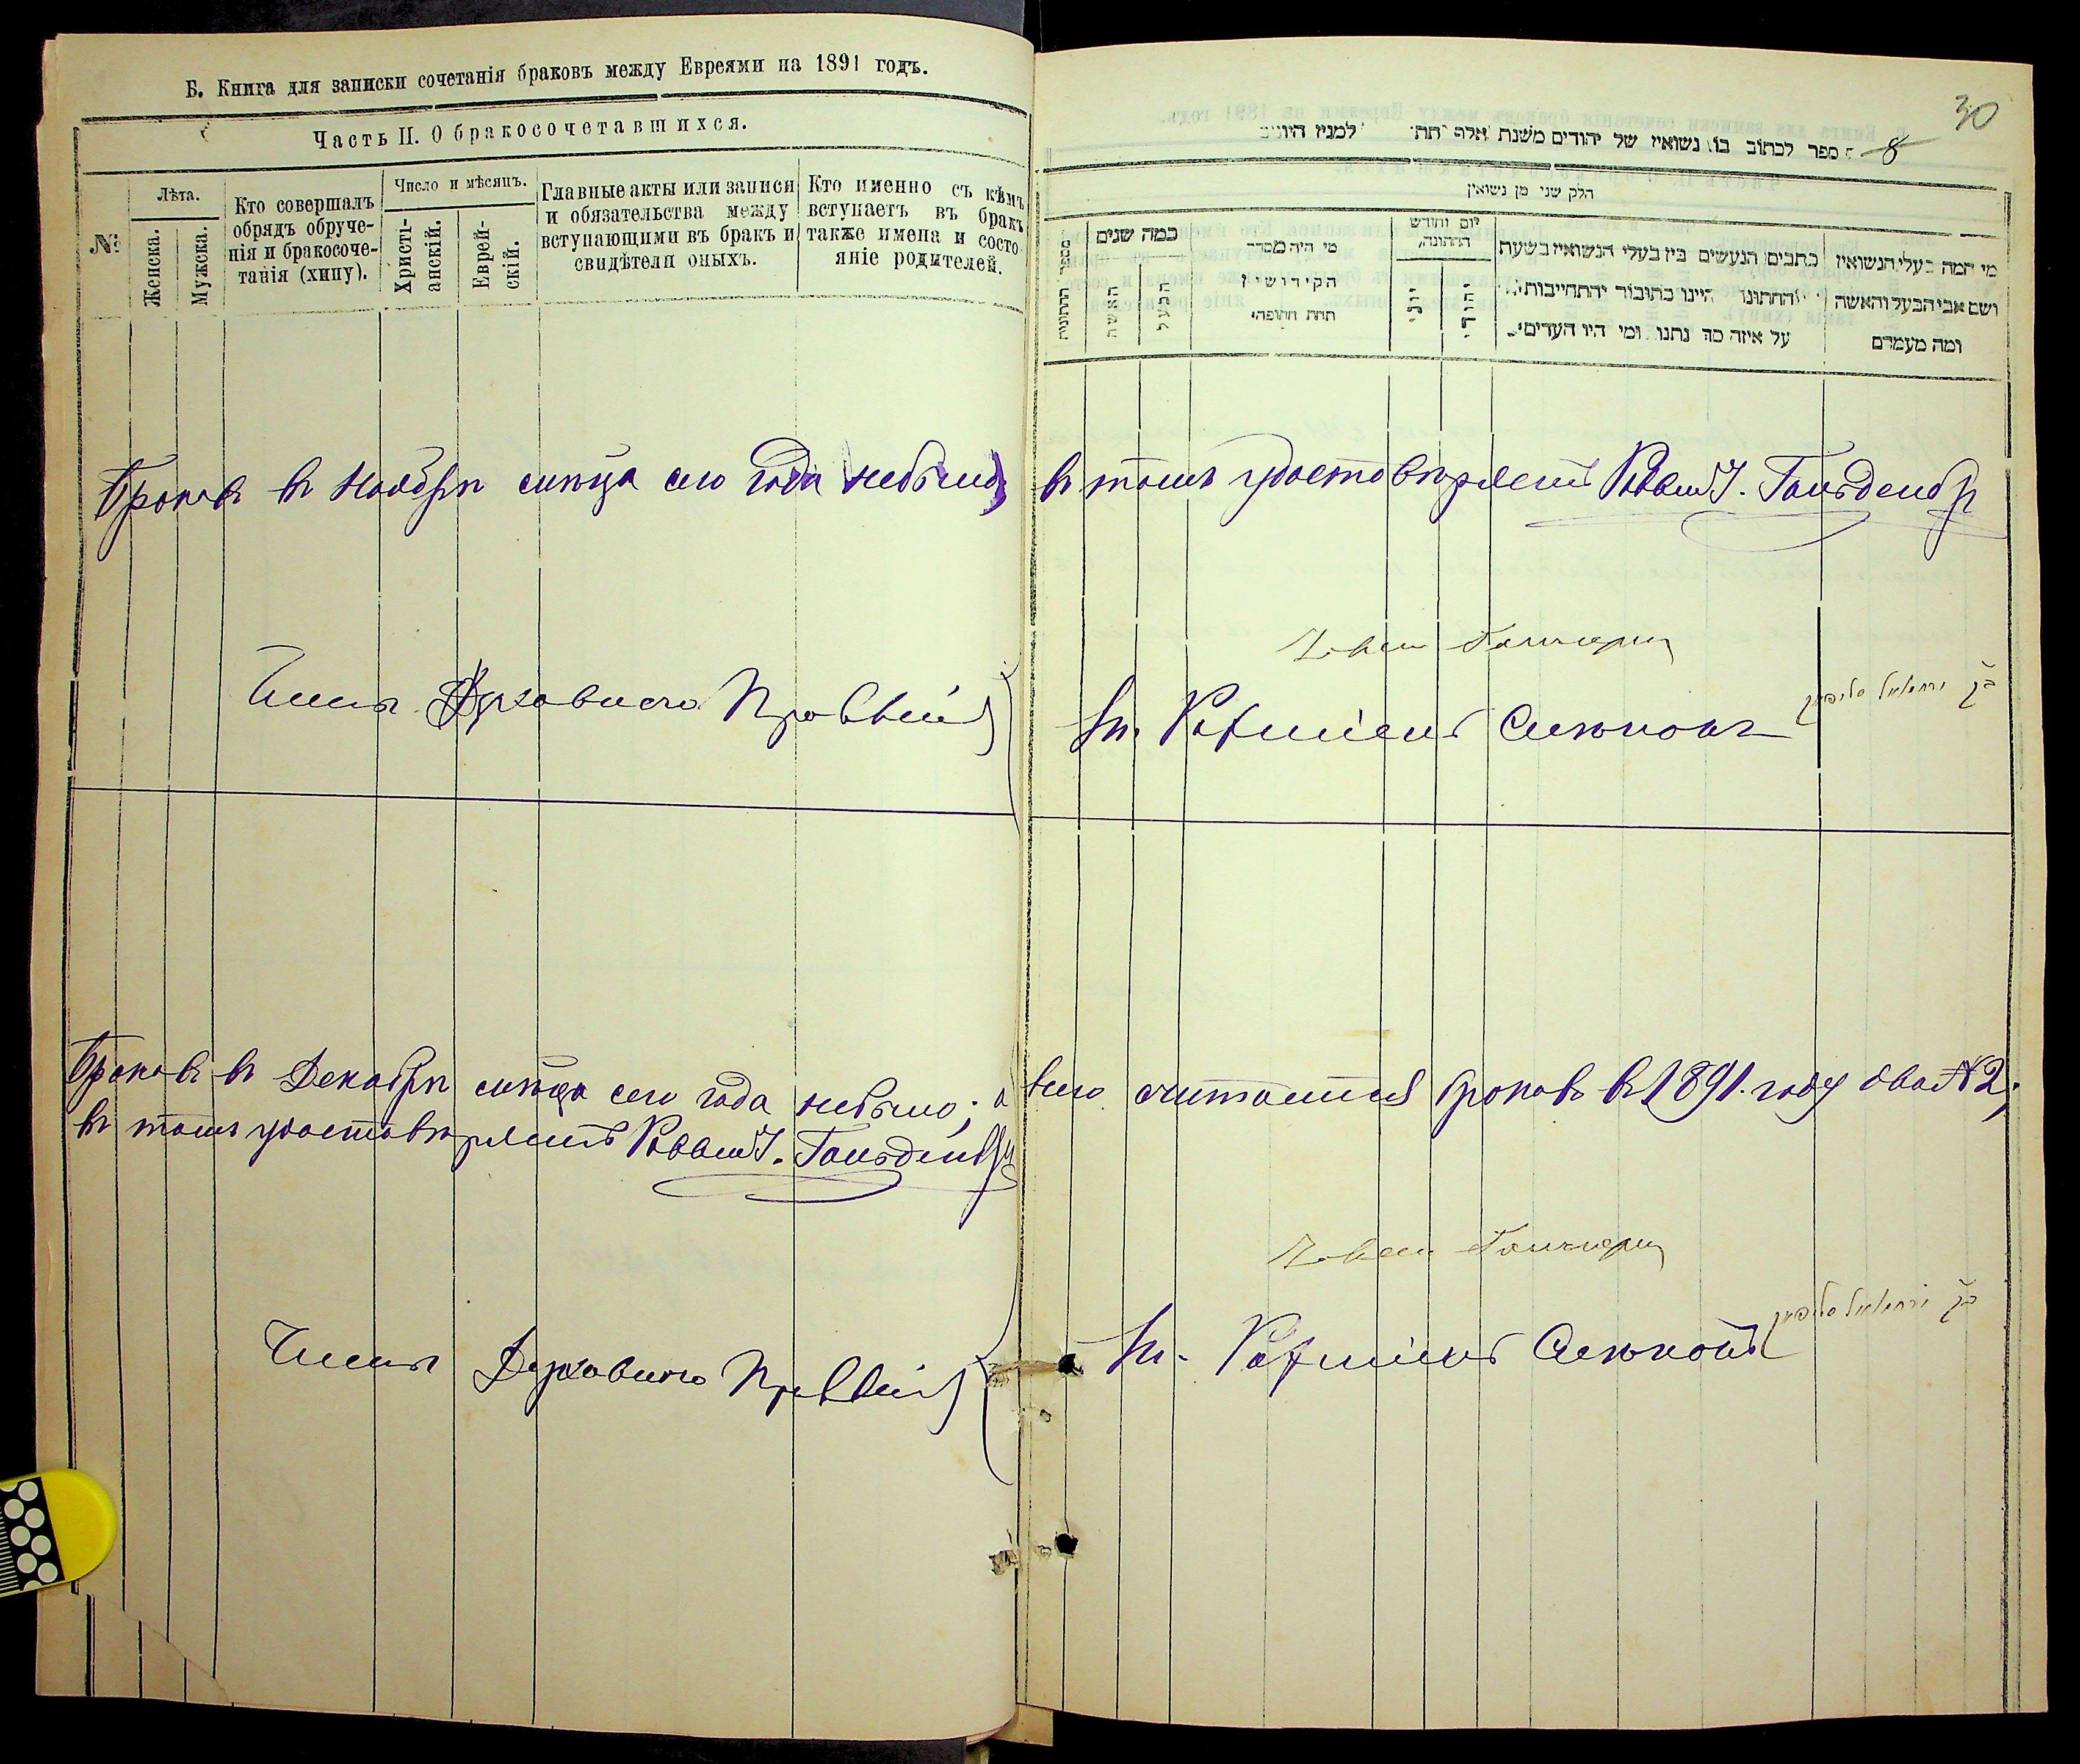 Б. Книга для записки сочетанія браковъ между Евреями на 1891 годъ.
Часть II. О бракосочетавшихся.
№
Лѣта.
Женска.
Мужска.
Кто совершалъ
обрядъ обруче-
нія и бракосоче-
танія (хипу).
Число и мѣсяцъ.
Христі-
анскій.
Еврей-
скій.
Главные акты или записи
и обязательства между
вступающими въ бракъ и
свидѣтели оныхъ.
Кто именно съ кѣмъ
вступаетъ въ бракъ
также имена и состо-
яніе родителей.
30
8
ספר לכתוב בו נשואין של יהודים משנת אלה תת למנין היונים
חלק שני מן נשואין
מספר החתונה
כמה שנים
האשה
הבעל
מי היה מסדר
הקידושין
תחת החופה
יום וחודש
החתונה
יוני
יהודי
כתבים הנעשים בין בעלי הנשואין בשעת
החתונה היינו כתובה והתחייבות
על איזה סך נתנו ומי היו העדים
מי המה בעלי הנשואין
ושם אבי הבעל והאשה
ומה מעמדם
Браковъ въ Ноябрѣ мѣсяца сего года небыло, въ томъ удостовѣряетъ Раввинъ
Члены Духовнаго Правленія
Браковъ въ Декабрѣ мѣсяца сего года небыло; а всего считается браковъ въ 1891. году два №2;
въ томъ удостовѣряетъ Раввинъ
Члены Духовнаго Правленія